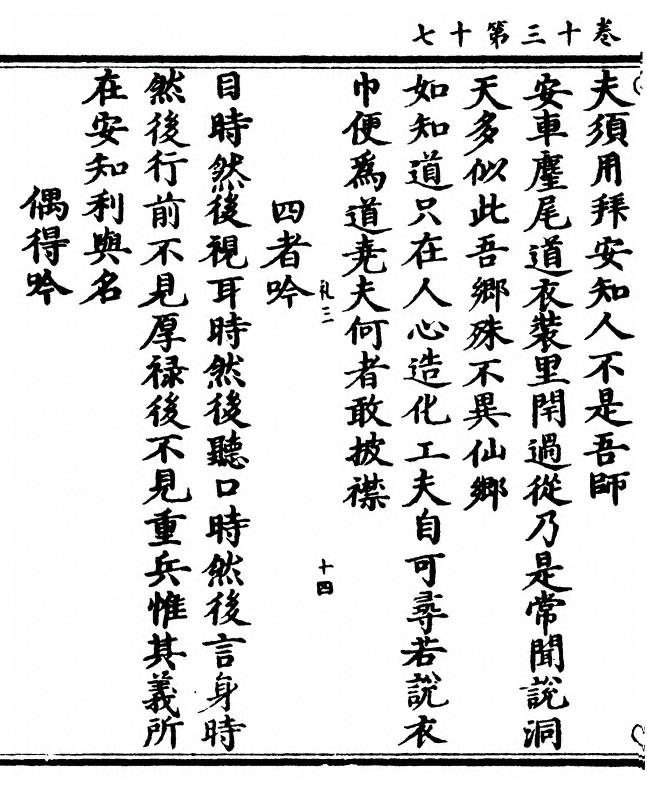 卷十三第十七
夫須用拜安知人不是吾師
安車麈尾道衣裝里閈過從乃是常聞說洞
天多似此吾鄉殊不異仙鄉
如知道只在人心造化工夫自可尋若說衣
巾便為道堯夫何者敢披襟
礼三
十四
四者吟
目時然後視耳時然後聽口時然後言身時
然後行前不見厚祿後不見重兵惟其義所
在安知利與名
偶得吟